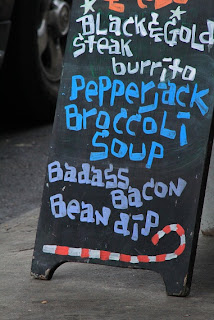 Black & Gold
steak
burrito
Pepperjack
Broccoli
Soup
Badass Bacon
Bean dip